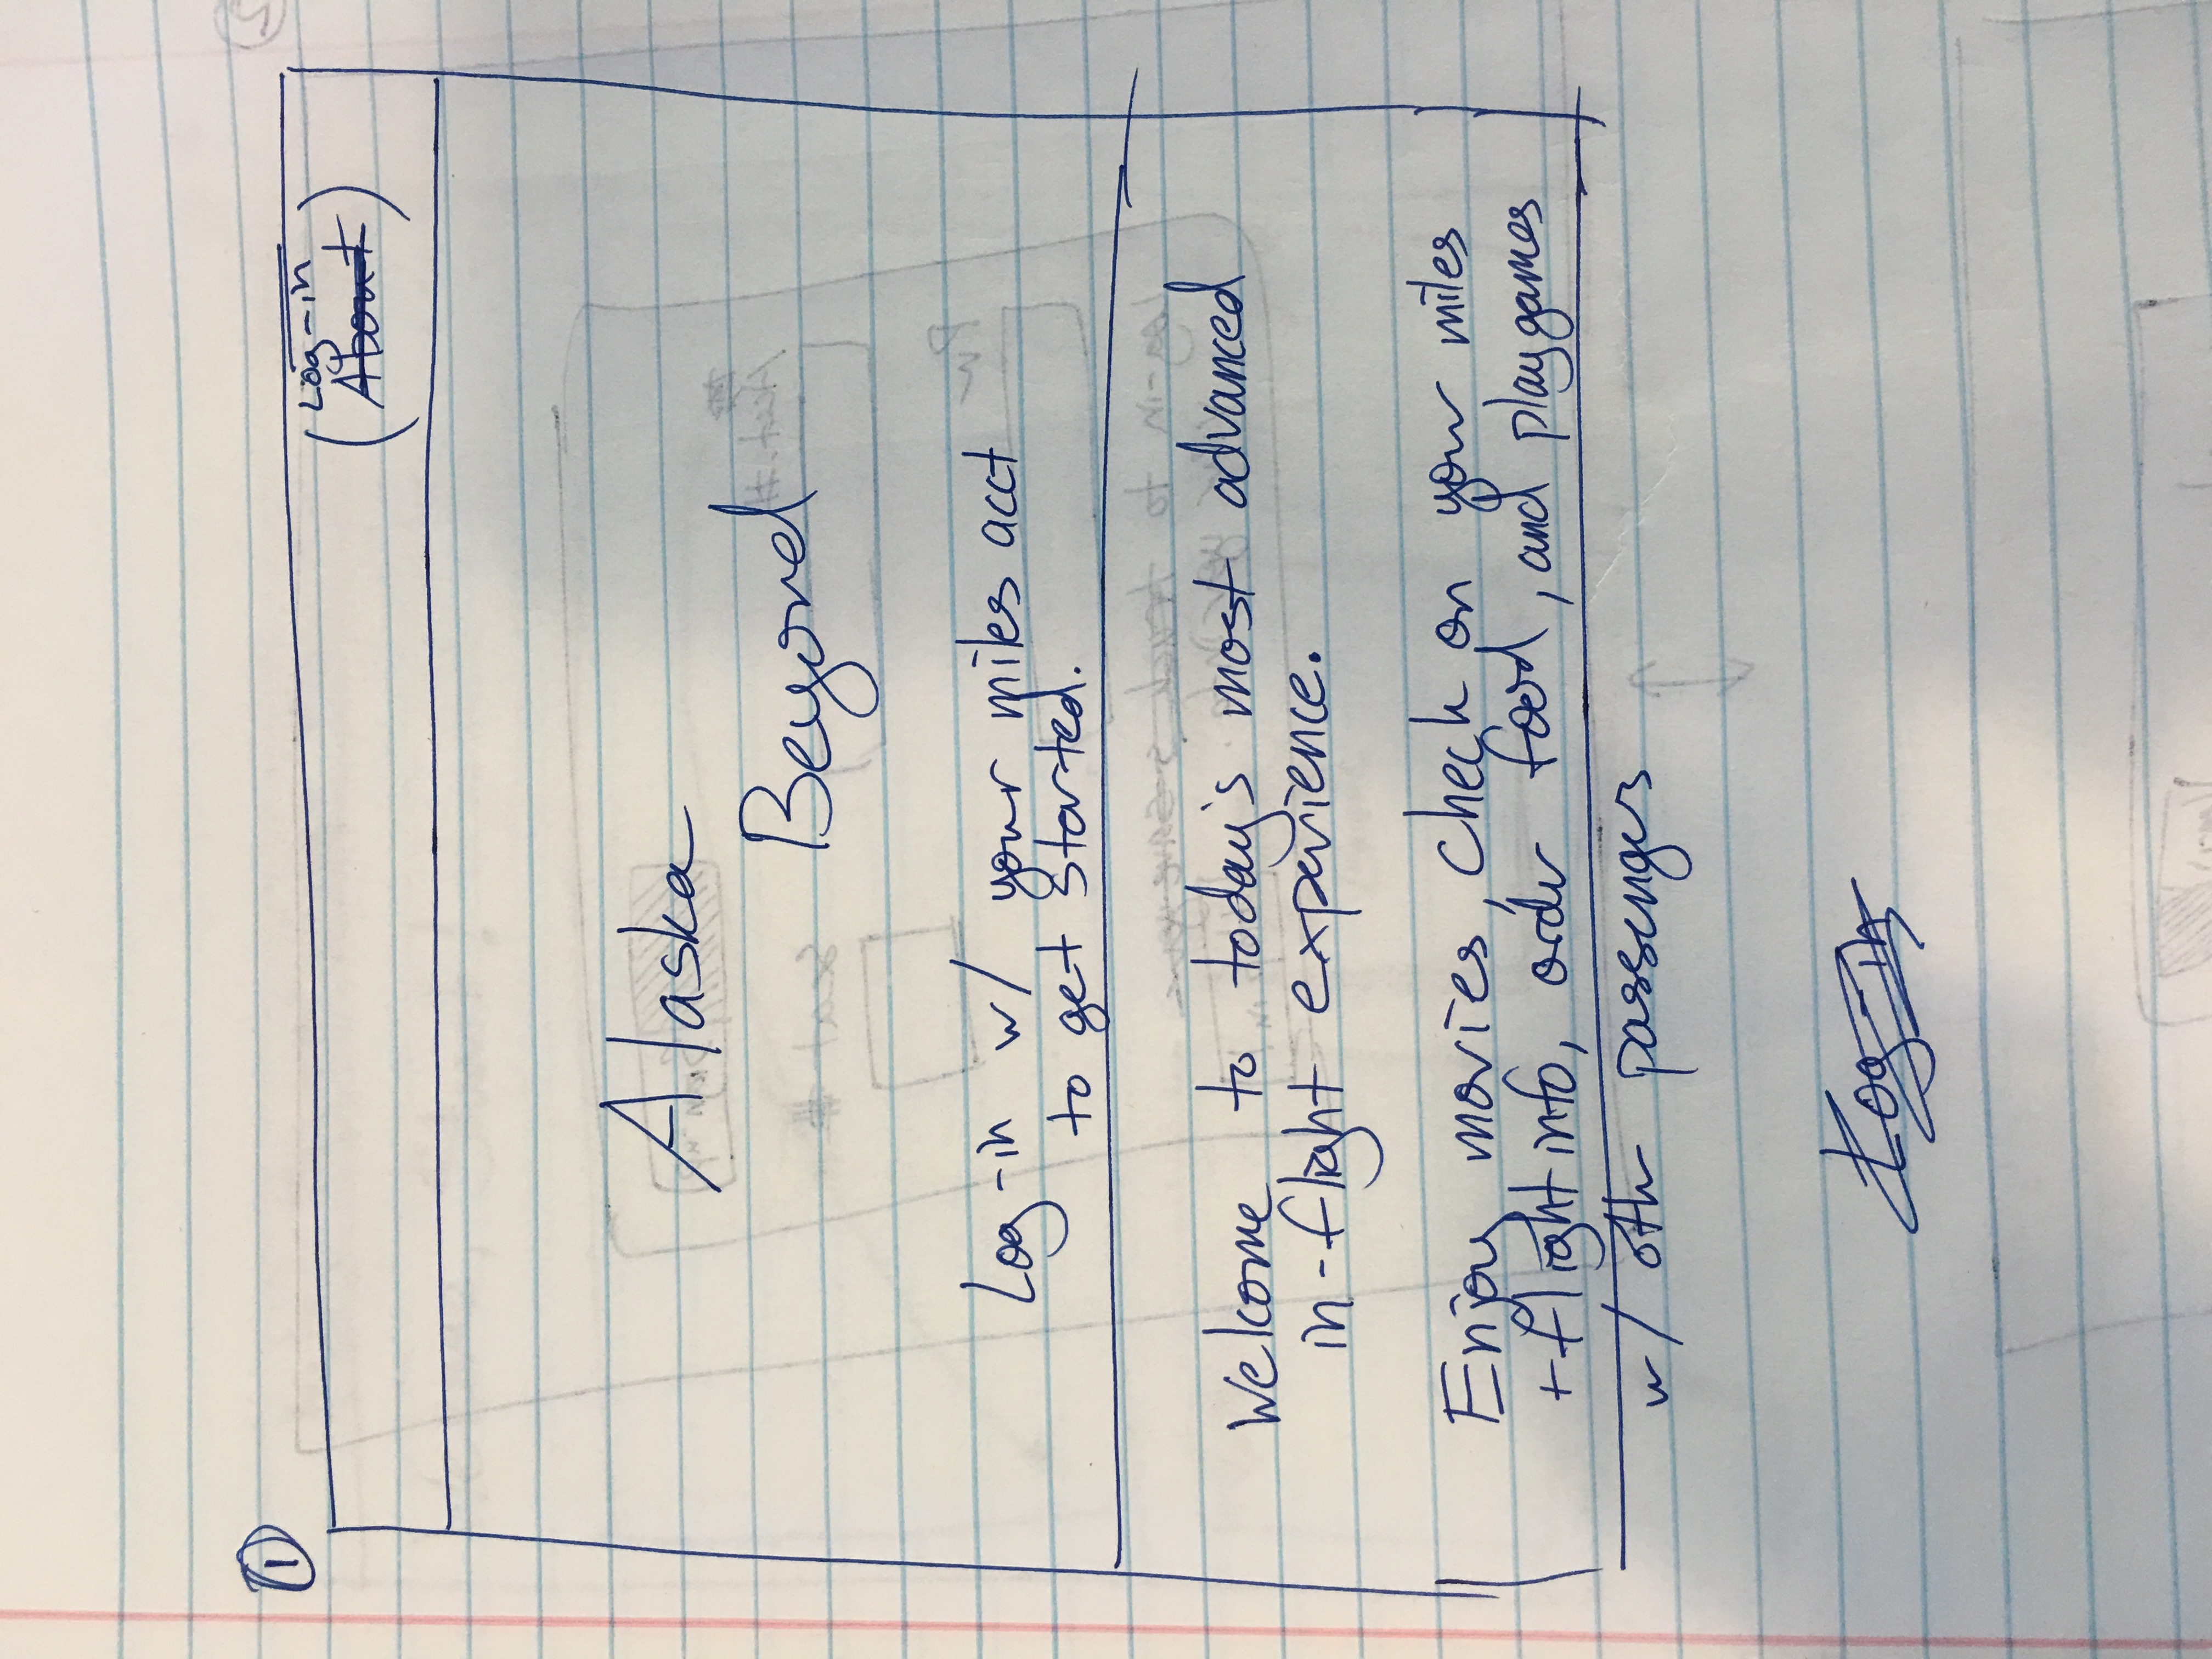 1
Log-in
About
Alaska
Beyond
Log-in w/ your miles acct
to get started.
Welcome to today's most advanced
in-flight experience.
Enjoy movies, check on your miles
+ flight info, order food, and play games
w/ other passengers
Log-in